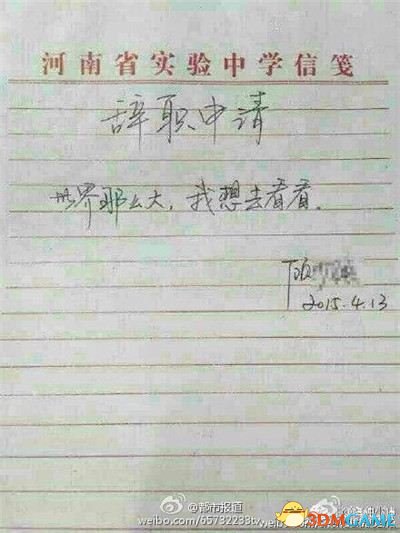 河南省实验中学信笺
辞职申请
世界那么大，我想去看看。
顾
2015.4.13
@都市报道
weibo.com/65732233tv
3DMGAME